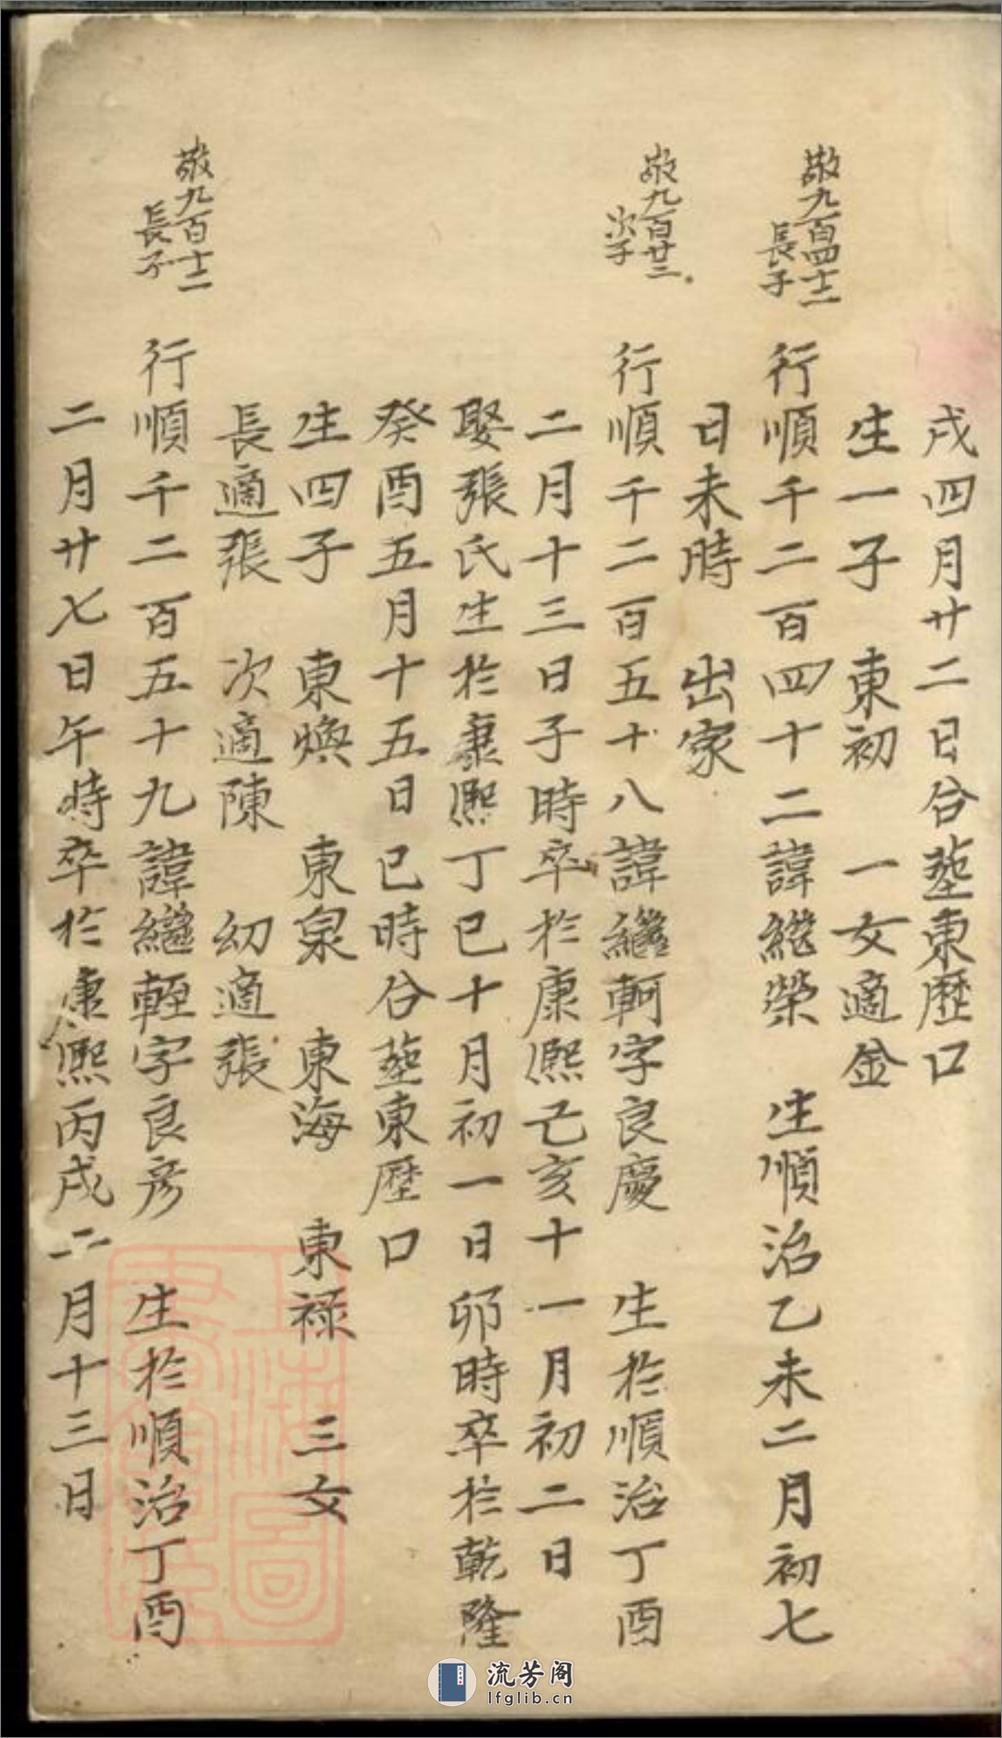 戌四月廿二日合塟東歷口
生一子　東初　一女適金
敬九百四十二
長子
行順千二百四十二諱継榮　生順治乙未二月初七
日未時　出家
敬九百廿三
次子
行順千二百五十八諱繼軻字良慶　生於順治丁酉
二月十三日子時卒於康熙乙亥十一月初二日
娶張氏生於康熙丁巳十月初一日卯時卒於乾隆
癸酉五月十五日巳時合塟東歷口
生四子　東煥　東泉　東海　東禄　三女
長適張　次適陳　幼適張
敬九百十二
長子
行順千二百五十九諱繼輊字良彦　生於順治丁酉
二月廿七日午時卒於康熙丙戌二月十三日
上海圖
書館藏
流芳阁
lfglib.cn